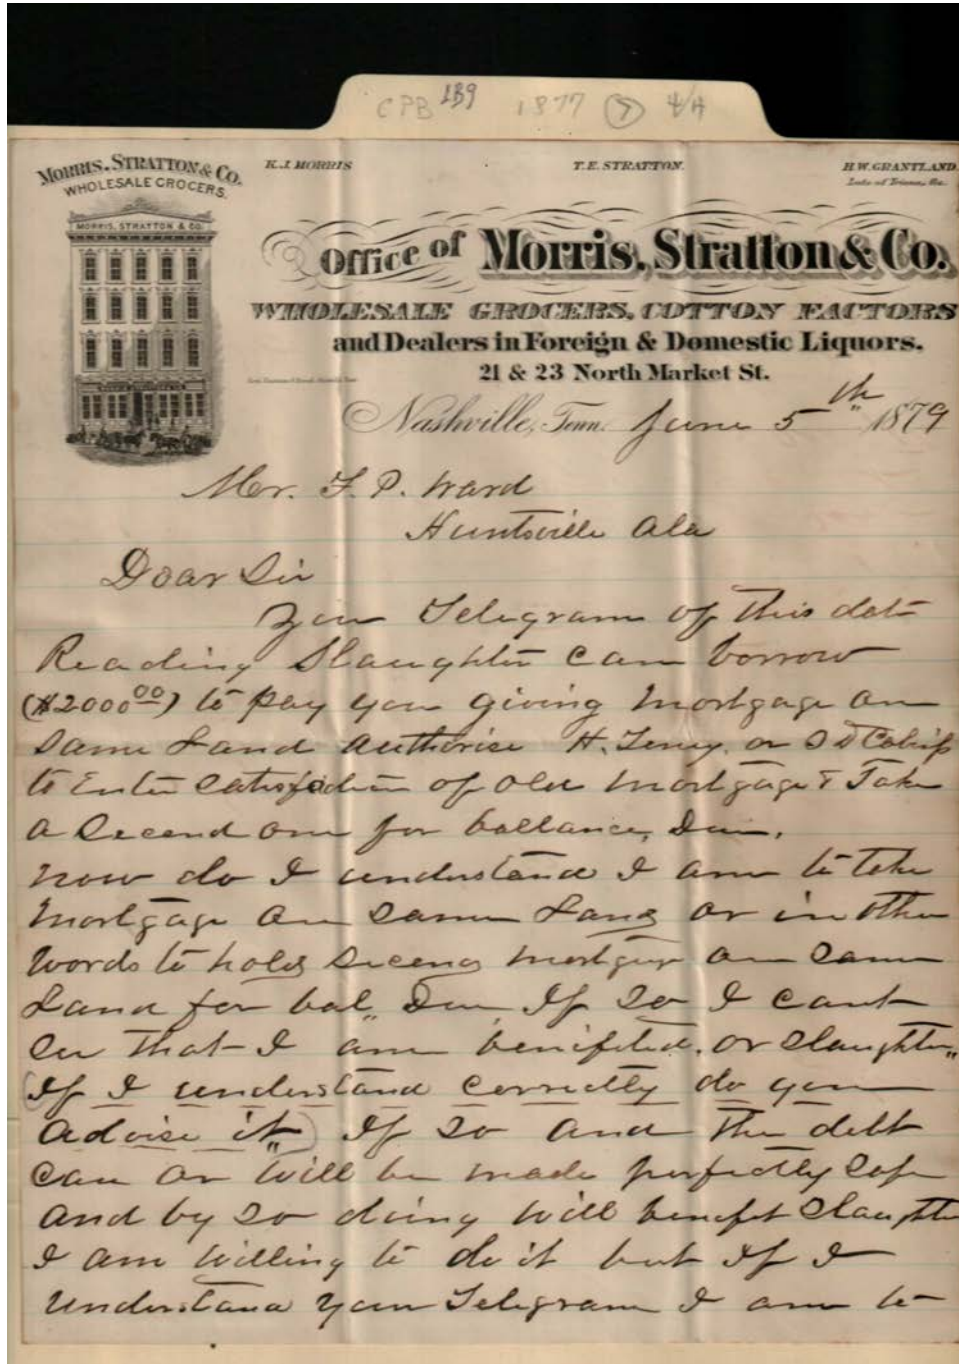 CPB LB9 1877 (7)
MORRIS, STRATTON & CO.
WHOLESALE GROCERS.
MORRIS, STRATTON & CO.
K. J. MORRIS
T. E. STRATTON.
H. W. GRANTLAND.
Late of Triana, Ala.
Office of Morris, Stratton & Co.
WHOLESALE GROCERS, COTTON FACTORS
and Dealers in Foreign & Domestic Liquors.
21 & 23 North Market St.
Nashville, Tenn. June 5th 1879
Mr. F. P. Ward
Huntsville Ala
Dear Sir
Your Telegram of this date
Reading Slaughter can borrow
($2000.00) to pay you giving mortgage on
same Land Authorise H. or S D
to Enter Satisfaction of old mortgage & Take
a Second one for ballance, Due.
now do I understand I am to take
mortgage on same Land or in other
words to hold Second mortgage on same
Land for bal,, Due If so I cant
see that I am benifited, or Slaughter,,
(If I understand correctly do you
advise it,,) If so and the debt
can or will be made perfectly safe
and by so doing will benefit Slaughter
I am willing to do it but if I
understand your Telegram I am to